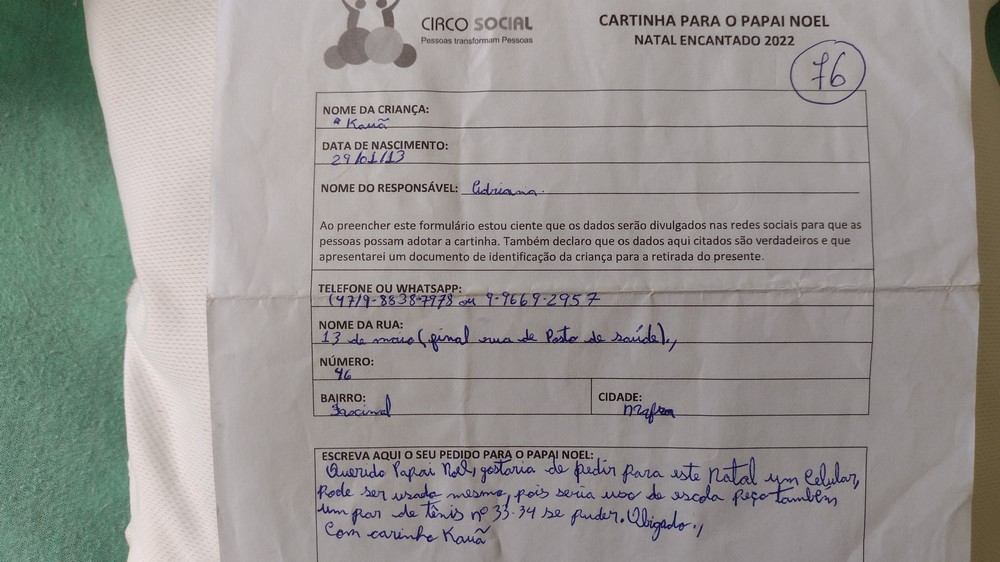 CIRCO SOCIAL
Pessoas transformam Pessoas
CARTINHA PARA O PAPAI NOEL
NATAL ENCANTADO 2022
76
NOME DA CRIANÇA:
Kauã
DATA DE NASCIMENTO:
29/01/13
NOME DO RESPONSÁVEL: Adriana.
Ao preencher este formulário estou ciente que os dados serão divulgados nas redes sociais para que as
pessoas possam adotar a cartinha. Também declaro que os dados aqui citados são verdadeiros e que
apresentarei um documento de identificação da criança para a retirada do presente.
TELEFONE OU WHATSAPP:
(47)9-8838-7978 ou 9-9669-2957
NOME DA RUA:
13 de maio (final rua de Posto de saúde).,
NÚMERO:
46
BAIRRO:
Faxinal
CIDADE:
Mafra
ESCREVA AQUI O SEU PEDIDO PARA O PAPAI NOEL:
Querido Papai Noel, gostaria de pedir para este Natal um Celular,
Pode ser usado mesmo, pois seria uso de escola peço também
um par de tênis nº 33-34 se puder. Obigado.,
Com carinho Kauã